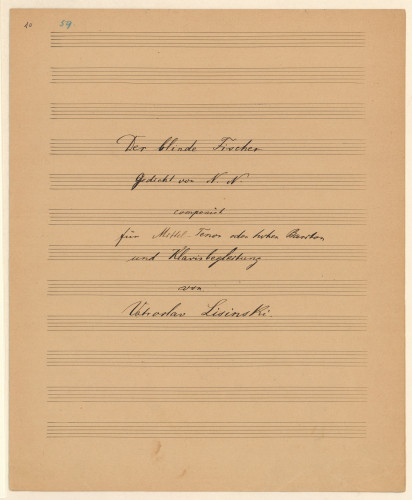 10 84
Der blinde Fischer
Gedicht von N. N.
componirt
für Mittel-Tenor oder hohen Bariton
und Klavierbegleitung
von
Vatroslav Lisinski.